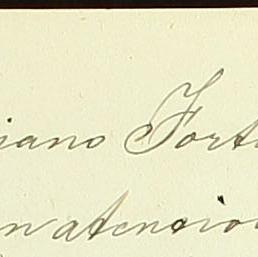 iano Fort
n atencion